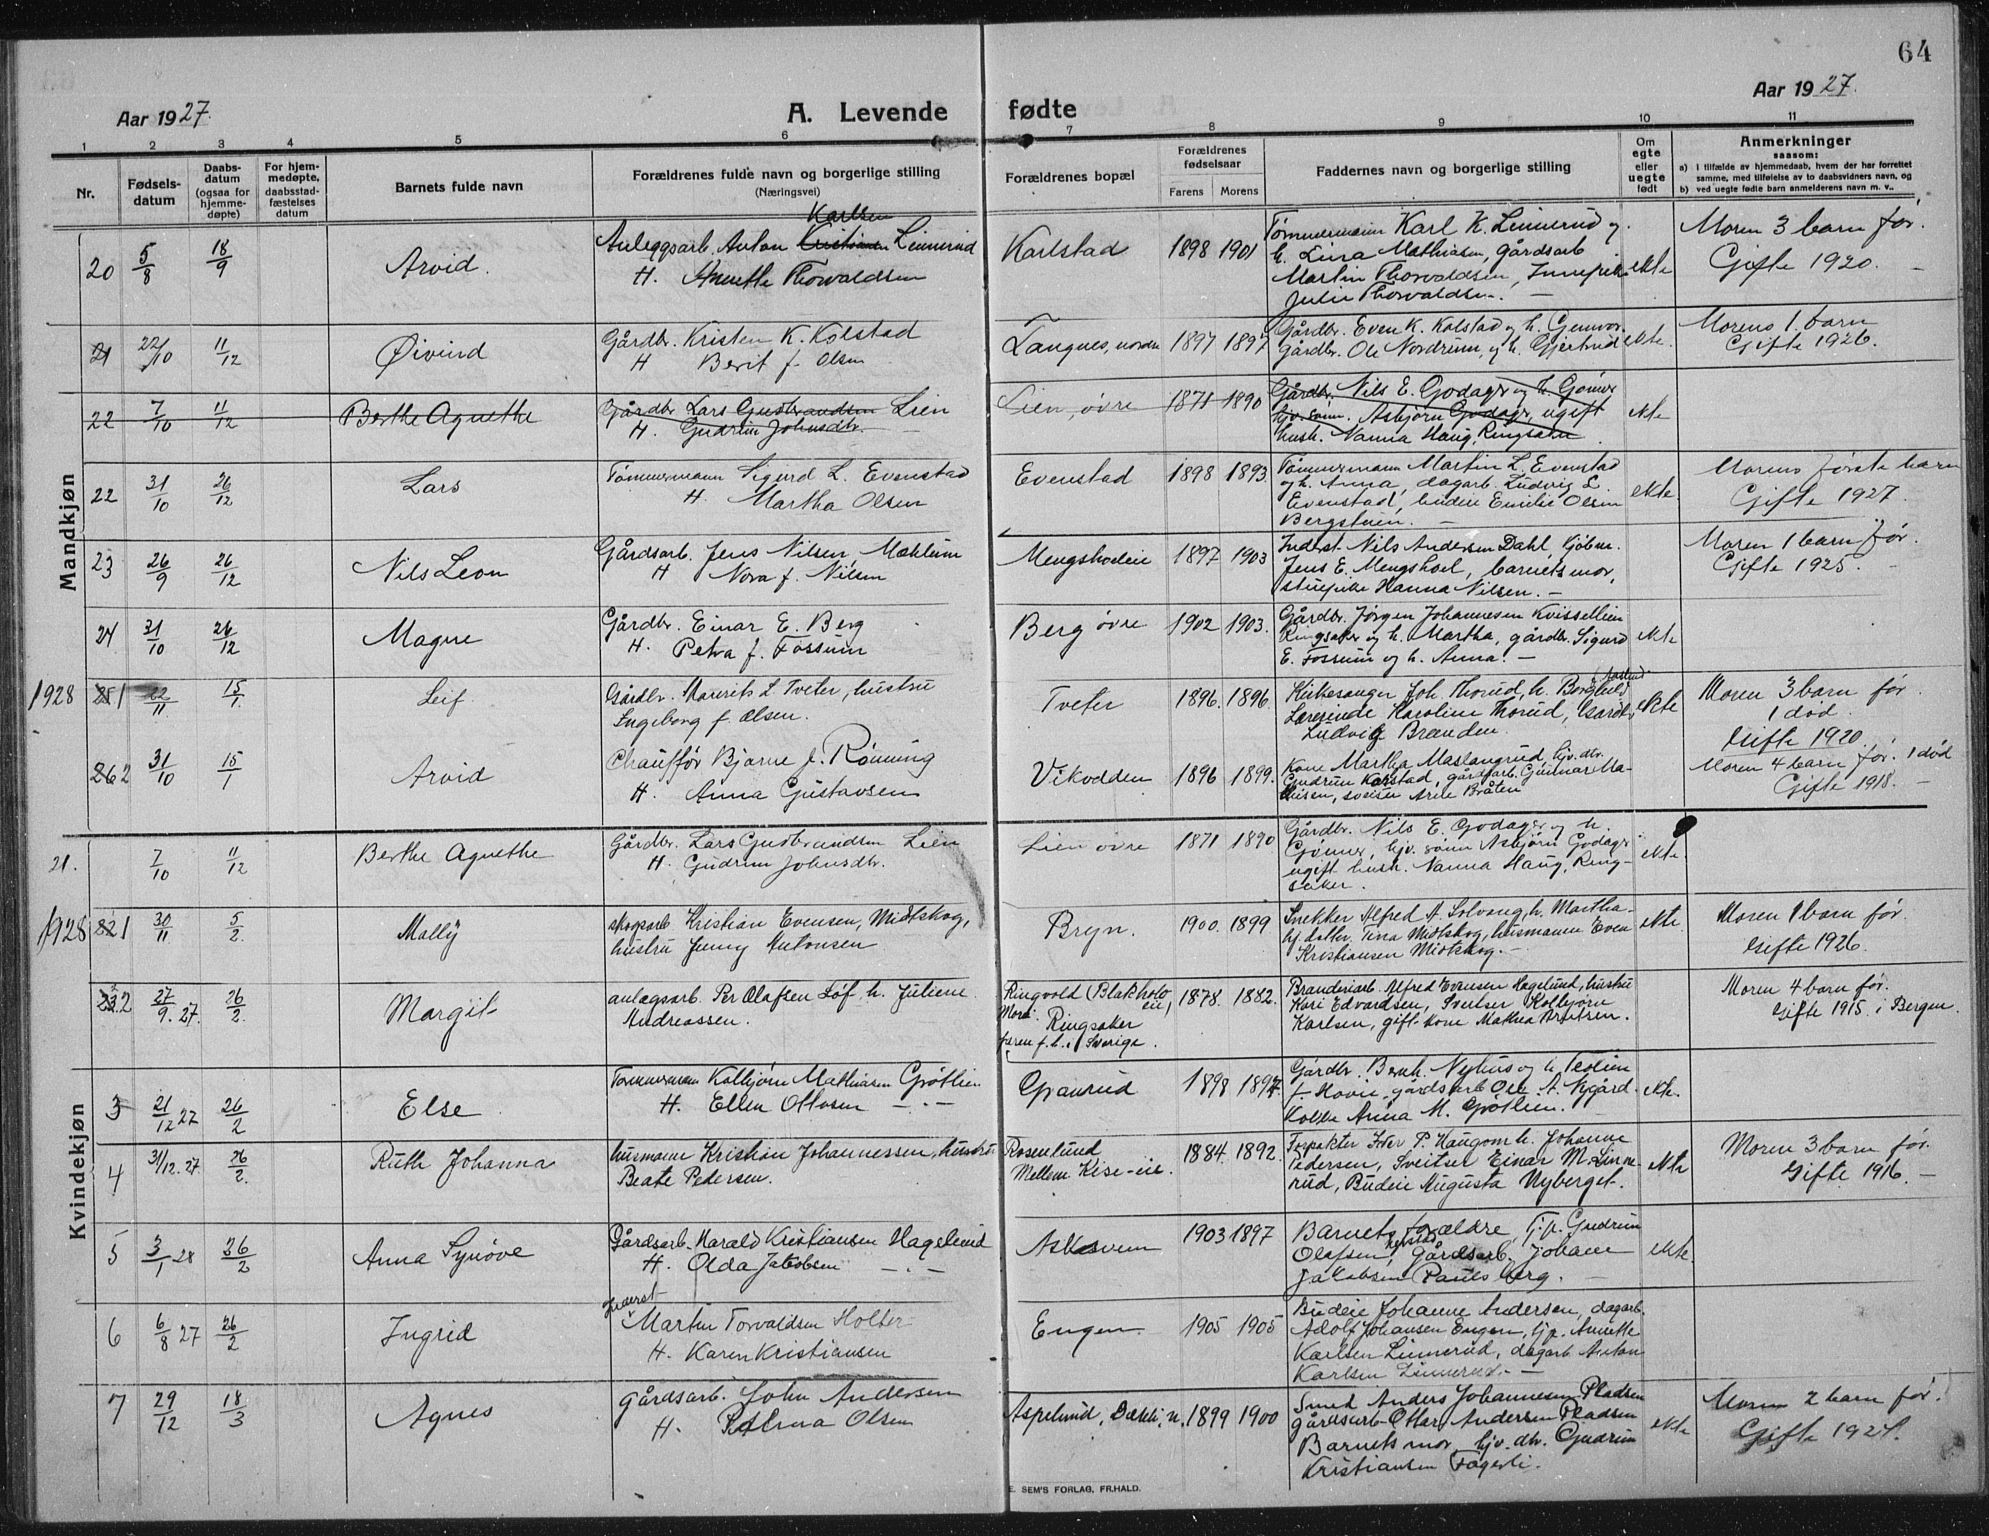 64
Aar 1927.
A. Levende fødte
Aar 1927.
1 2 3 4 5 6 7 8 9 10 11
Nr.
Fødsels-
datum
Daabs-
datum
(ogsaa for
hjemme-
døpte)
For hjem-
medøpte,
daabsstad-
fæstelses
datum
Barnets fulde navn
Forældrenes fulde navn og borgerlige stilling
(Næringsvei)
Forældrenes bopæl
Forældrenes
fødselsaar
Farens Morens
Faddernes navn og borgerlige stilling
Om
egte
eller
uegte
født
Anmerkninger
saasom:
a) i tilfælde av hjemmedaab, hvem der har forrettet
samme, med tilføielse av to daabsvidners navn, og
b) ved uegte fødte barn anmelderens navn m. v..
Mandkjøn
20 5/8 18/9 Arvid.
Karlsen
Anleggsarb. Anton Kristiansen Linnerud
H. Annette Thorvaldsen
Karlstad 1898 1901
Tømmermann Karl K. Linnerud og
h. Lina Mathiasen, gårdsarb
Martin Thorvaldsen,
Julie Thorvaldsen. —
ekte
Moren 3 barn før.
Gifte 1920. —
21 22/10 11/12 Øivind
Gårdbr. Kristen K. Kolstad
H Berit f. Olsen
Langnes, nordre 1897 1897
Gårdbr. Even K. Kolstad og h. Gunvor.
Gårdbr. Ole Nordrum, og h. Gjertrud
ekte.
Morens 1. barn
Gifte 1926.
22 7/10 11/12 Berthe Agnethe
Gårdbr Lars Gudbrandsen Lien
H. Gudrun Johnsdtr.
Lien, øvre 1871 1890
Gårdbr. Nils E. Godager og h. Gønner
hjv. sønn. Asbjørn Godager, ugift
hush. Nanna Haug, Ringsaker
ekte
22 31/10 26/12 Lars
Tømmermann Sigurd L. Evenstad
H. Martha Olsen
Evenstad 1898 1893
Tømmermann Martin L. Evenstad
og h. Anna, dagarb. Ludvig L.
Evenstad, budeie Emilie Olsen
Bergstuen. —
ekte.
Morens første barn
Gifte 1927.
23 26/9 26/12 Nils Leon
Gårdsarb. Jens Nilsen Mæhlum
H Nora f. Nilsen
Mengshoeleie 1897 1903
Inderst. Nils Andersen Dahl, kjøbm.
Jens E. Mengshoel, barnets mor,
stuepike Hanna Nilsen. —
Moren 1 barn før.
Gifte 1925. —
24 31/10 26/12 Magne
Gårdbr. Einar E. Berg
H. Petra f. Fossum
Berg øvre 1902 1903.
Gårdbr. Jørgen Johannesen Kvissellien
Ringsaker og h. Martha, gårdbr. Sigurd
E. Fossum og h. Anna. —
ekte
1928 25 1 22/11 15/1. Leif
Gårdbr. Maurits L Tveter, hustru
Ingeborg f. Olsen.
Tveter 1896. 1896.
Kirkesanger Joh. Thorud, h. Borghild
Lærerinde Karoline Thorud, Gårdbr
Ludvig Brænden.
ekte
Moren 3 barn før.
1 død.
Gifte 1920.
26 2 31/10 15/1 Arvid
Chauffør Bjarne J. Rønning
H. Anna Gustavsen
Vikodden 1896 1899.
Kone Martha Maslangrud, hjv. dtr.
Gudrun Karstad, gårdsarb. Gunnar Ma-
thisen, sveiser Arne Bråten
Moren 4 barn før. 1 død
Gifte 1918. —
Kvindekjøn
21. 7/10 11/12 Berthe Agnethe
Gårdbr. Lars Gudbrandsen Lien
H. Gudrun Johnsdtr.
Lien øvre 1871 1890
Gårdbr. Nils E. Godager og h.
Gønner, hjv. sønn Asbjørn Godager
ugift hush. Nanna Haug, Ring-
saker.
ekte.
1928 22 1 30/11 5/2. Mally
skogsarb Kristian Evensen, Midtskog,
hustru Jenny Antonsen
Bryn. 1900. 1899
Snekker Alfred A. Solvang, h. Martha-
hj. datter. Tina Midtskog, husmann Even
Kristiansen Midtskog. —
ekte.
Moren 1 barn før.
Gifte 1926.
23 2 27/9. 27. 26/2. Margit
anlægsarb. Per Olafsen Løf, h. Juliene
Andreassen.
Ringvold (Blakholo
eie,
Moren Ringsaker
faren f. h. i Sverige.
1878. 1882.
Branderiarb. Alfred Evensen Hagelund, hustru
Kari Edvardsen, Sveitser Kolbjørn
Karlsen, gift kone Mathea Arntsen.
Moren 4 barn før.
Gifte 1915. i Bergen.
3 21/12 27 26/2 Else
Tømmermann Kolbjørn Mathiasen Grøtlien
H. Ellen Ottosen — " —
Granrud 1898 1897.
Gårdbr. Bernh. Nyhus og h. Teoline
f. Hovie, gårdsarb Ole A. Nygård
Kokke Anna M. Grøtlien.
ekte.
4 31/12. 27. 26/2. Ruth Johanna
husmann Kristian Johannessen, hustru
Beate Pedersen.
Rosenlund
Mellem Kise-eie.
1884. 1892.
Forpakter Iver P. Haugom h. Johanne
Pedersen, Sveitser Einar M. Linne-
rud, Budeie Augusta Nyberget.
ekte
Moren 3 barn før.
Gifte 1916. —
5 3/1 28 26/2 Anna Synøve
Gårdsarb. Harald Kristiansen Hagelund
H. Olda Jakobsen — " —
Askesveen 1903 1897
Barnets forældre, tj.p. Gudrun
Olafsen, gårdsarb. Johan
Jakobsen Paulsberg. —
ekte
6 6/8 27 26/2 Ingrid
Inderst
Martin Torvaldsen Holter
H. Karen Kristiansen
Engen. 1905 1905
Budeie Johanne Andersen, dagarb.
Adolf Johansen Engen, tj.p. Annette
Karlsen Linnerud, dagarb Anton
Karlsen Linnerud. —
7 29/12 18/3 Agnes
gårdsarb. John Andersen
H. Palma Olsen
Aspelund, Bækli, n. 1899 1900
Smed Anders Johannesen Pladsen
gårdsarb. Ottar Andersen Pladsen
Barnets mor, hjv. dtr. Gudrun
Kristiansen Fagerli.
ekte
Moren 2 barn før.
Gifte 1921.
E. SEM'S FORLAG, FR.HALD.